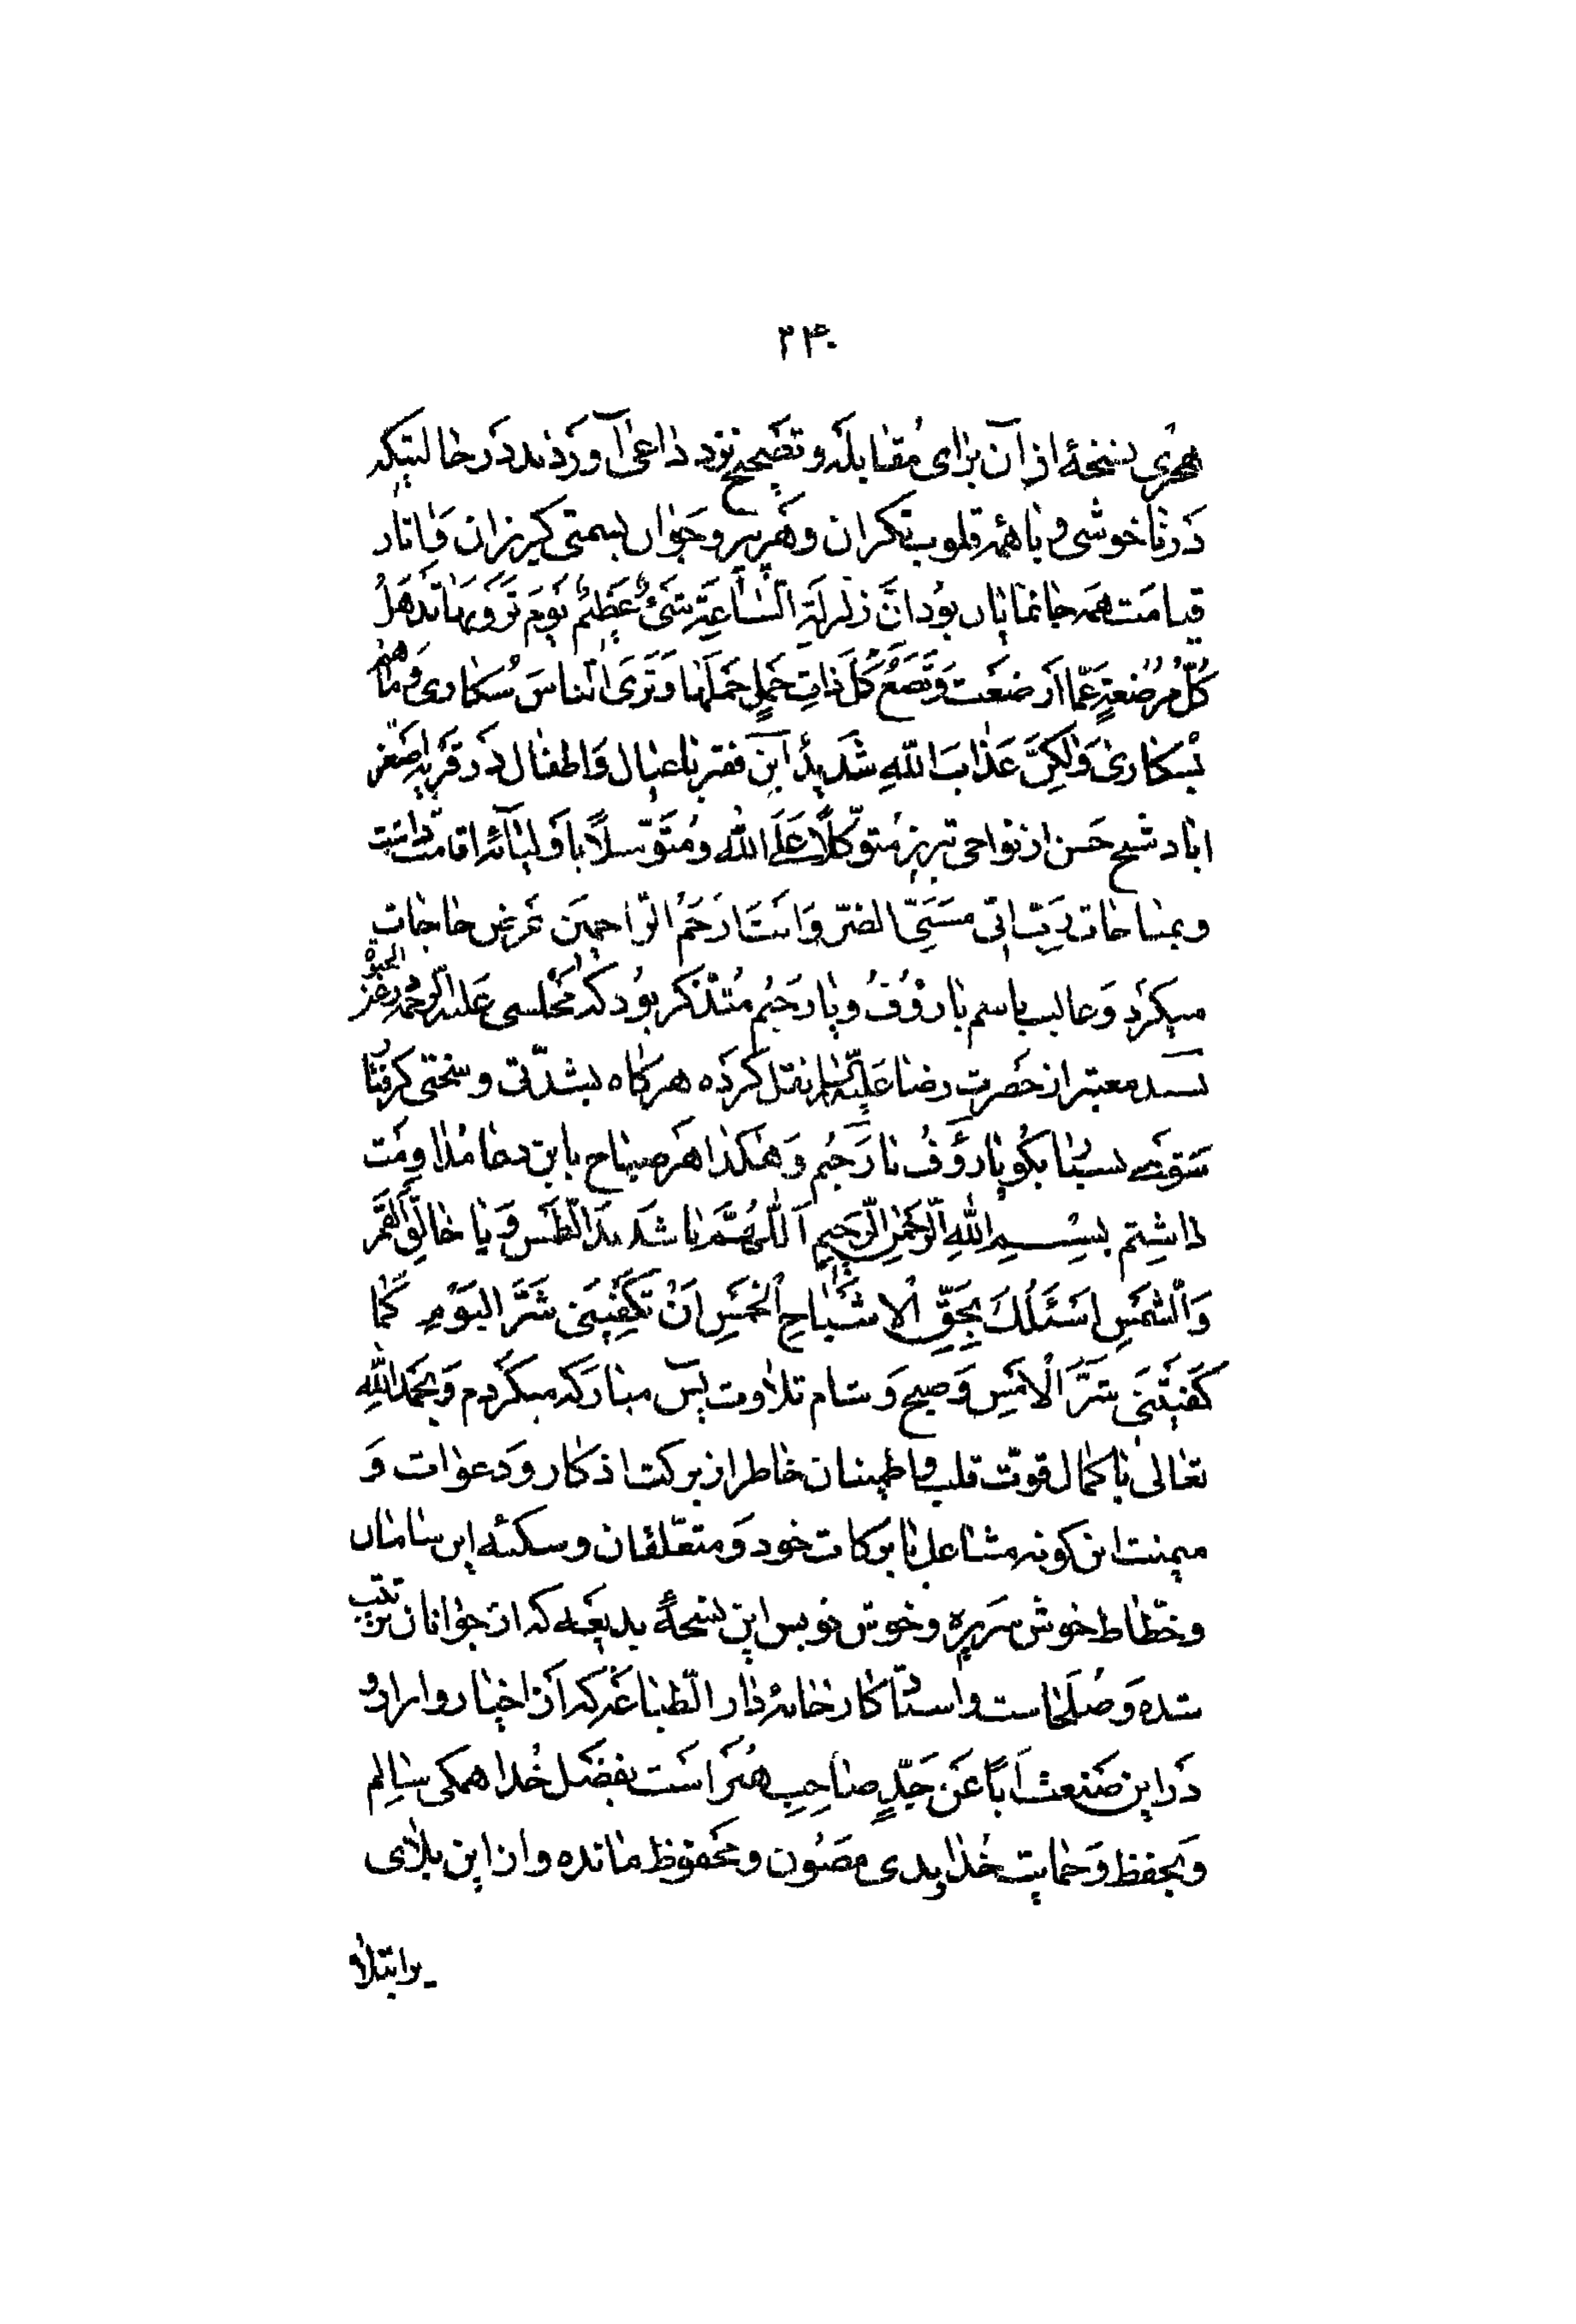 ۲۴۰
نسخهٔ از آن برای مُقابله و تصحیح نزد داعی آوردند در حالتیکه
در ناخوشی وبا همه قلوب نگران و هر پیر و جوان بسمتی گریزان وَ اثار
قیامت همه جا نمایان بود انَّ زلزلة السّاعَةِ شَیءٌ عَظیمٌ یَومَ تَرَونَهٰا تَذهَلُ
کُلُّ مُرضِعَةٍ عَمّا اَرضَعَت وَتَضَعُ کُلُّ ذاتِ حَملٍ حَملَها وَتَرَی النّاسَ سُکٰاریٰ وَمٰا هُم
بِسُکاریٰ وَلٰکِنَّ عَذابَ اللهِ شَدیدٌ این فقیر با عیال وَ اطفال در قریهٔ اصغر
اباد شیخ حَسَن از نواحی تبریز مُتوکّلًا عَلَی اللهِ ومُتَوَسّلًا باَولیائه اقامت داشت
و بمناجات رَبِّ انّی مَسَّنِیَ الضرّ وَاَنتَ اَرحَمُ الرّاحِمینَ عَرض حاجات
میکرد وَ غالب باسم یا رؤُفُ و یا رَحیُم مُتَذکّر بود که مجلسی علیه الرحمه در عین الحیوة
بسند معتبر از حضرت رضا عَلَیهِ السّلام نقل کرده هرگاه بشدّتی و سختی گرفتار
شوی بسیار بگو یا رَؤُفُ یا رَحیُم وَ هٰکذا هر صباح باین دعا مُداومَت
داشتم بِسْمِ اللهِ الرَّحْمٰنِ الرَّحیمِ اَللّهُمَّ یا شَدیدَ الطَّمسِ وَ یا خالِقَ القَمَرِ
وَالشَّمسِ اَسئَلُكَ بِحَقِّ الاَشباحِ الْخَمسِ اَنْ تَکفِیَنی شَرَّ الیَومِ کَما
کَفَیتَنی شَرَّ الْاَمسِ وَ صبح وَ شام تلاوت یٰسٓ مبارکه میکردم وَ بحَمدِ اللهِ
تعالی با کمال قوّت قلب و اطمینان خاطر از برکت اذکار وَ دعوات وَ
میمنت این گونه مشاغل با برکات خود وَ متعلّقان و سکنهٔ این سامان
و خطّاط خوش سریره و خوش نویس این نسخهٔ بدیعه که از جوانان تربیت
شده وَ صُلَحاست و استاد کارخانهٔ دار الطّباعَه که از اخیار و ابرار و
دَر این صَنعت اَباً عَن جَدٍّ صاحِبِ هُنَر اَست بفضل خُدا همگی سالِم
وَ بحفظ وَ حمایت خُدایِ مصُون و محفوظ مانده و از این بلای
پر ابتلاء